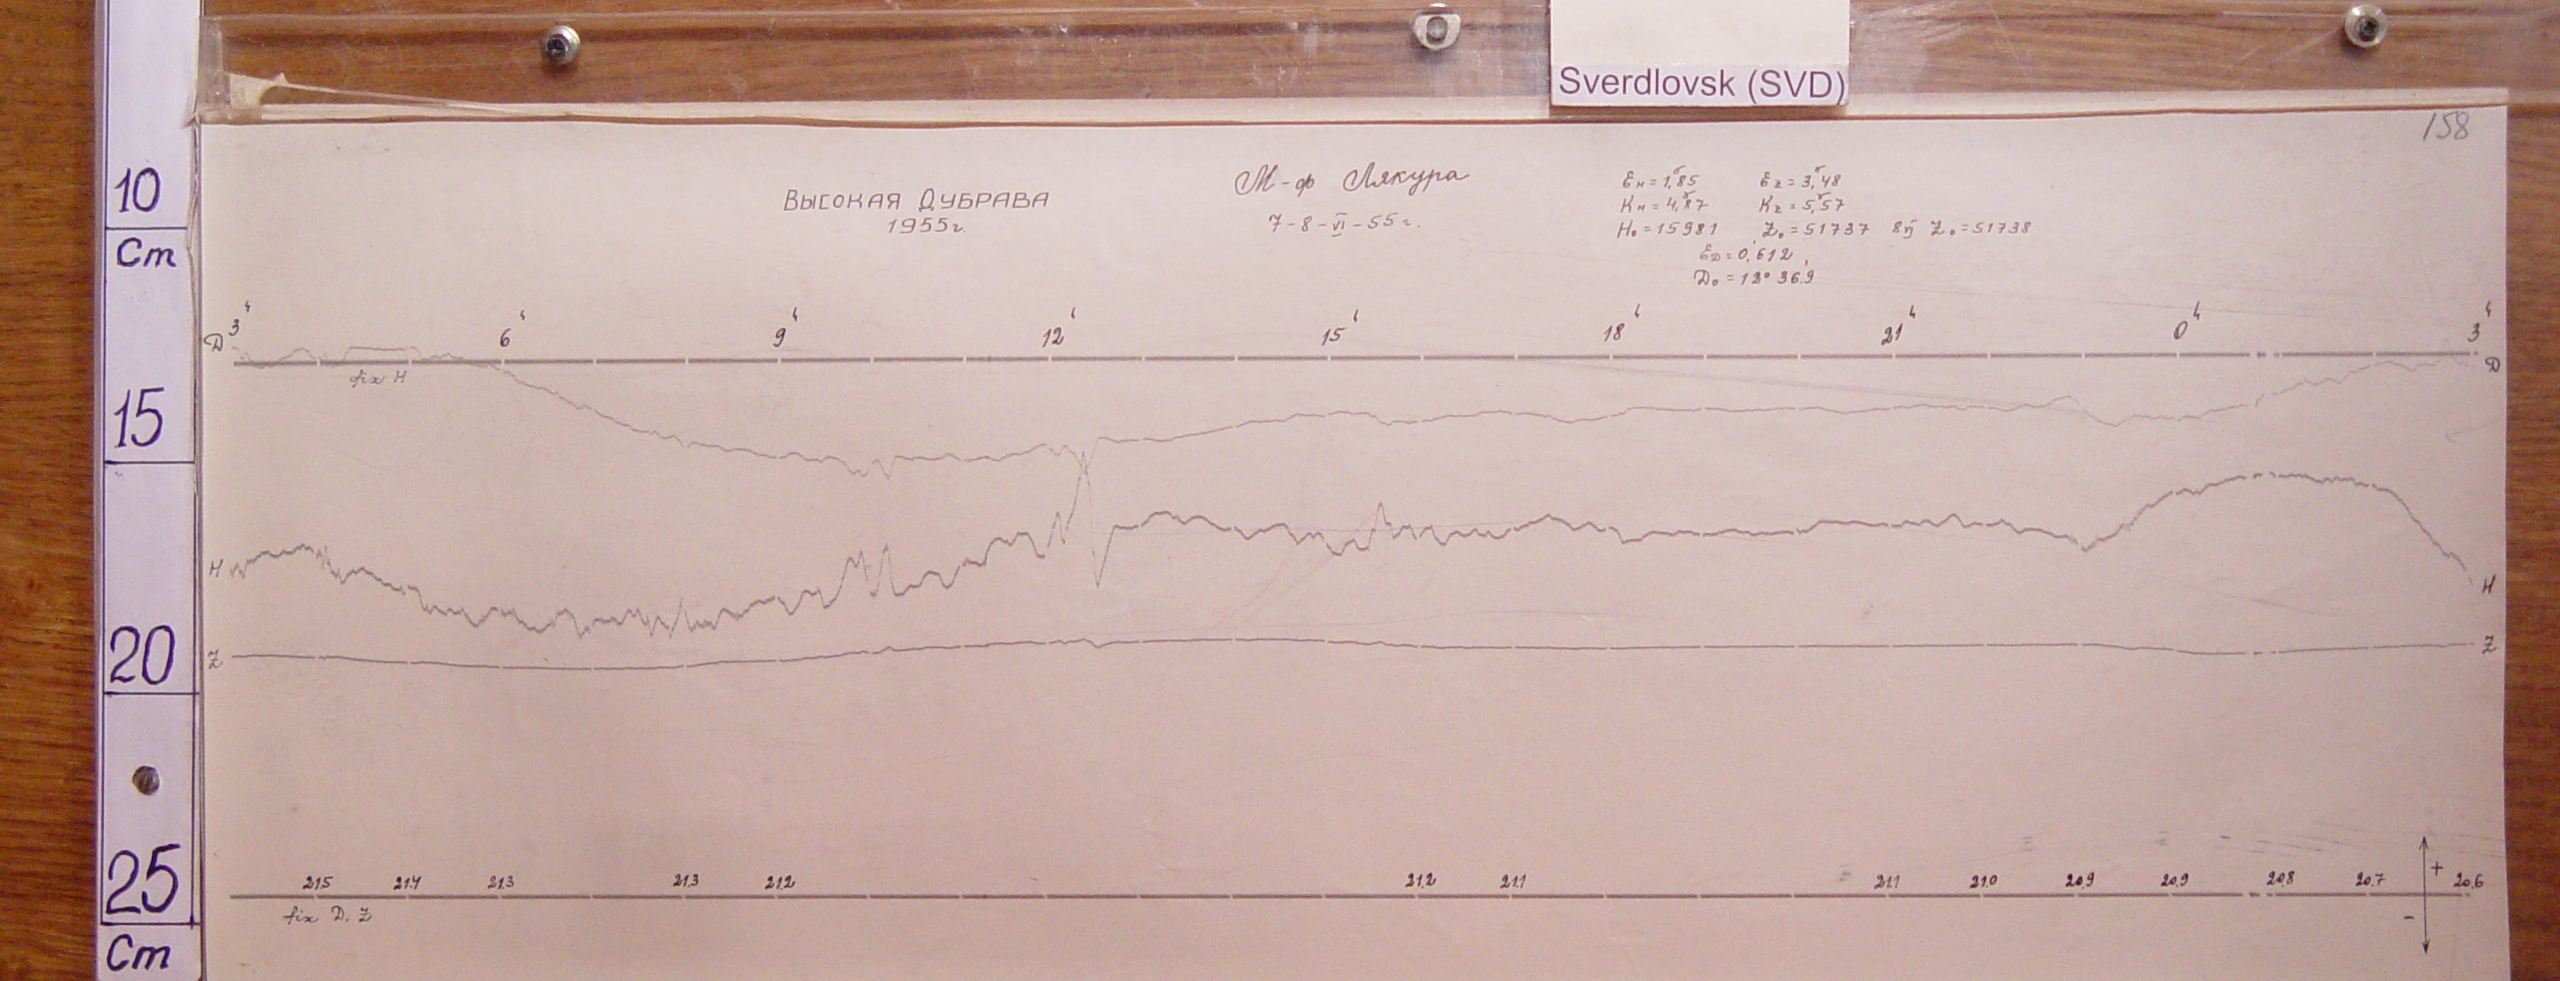 Sverdlovsk (SVD)
158
10
Cm
15
20
25
Cm
Высокая Дубрава
1955г.
М-ф Лякура
7-8-VI-55г.
Ɛн=1,85 Ɛz=3,48
Kн=4,87 Kz=5,57
H₀=15981 Z₀=51737 8VI Z₀=51738
ƐD=0,612
D₀=12° 36,9
3ч 6ч 9ч 12ч 15ч 18ч 21ч 0ч 3ч
D D
fix H
H H
Z Z
21.5 21.4 21.3 21.3 21.2 21.2 21.1 21.1 21.0 20.9 20.9 20.8 20.7 20.6
fix D. Z
+
-